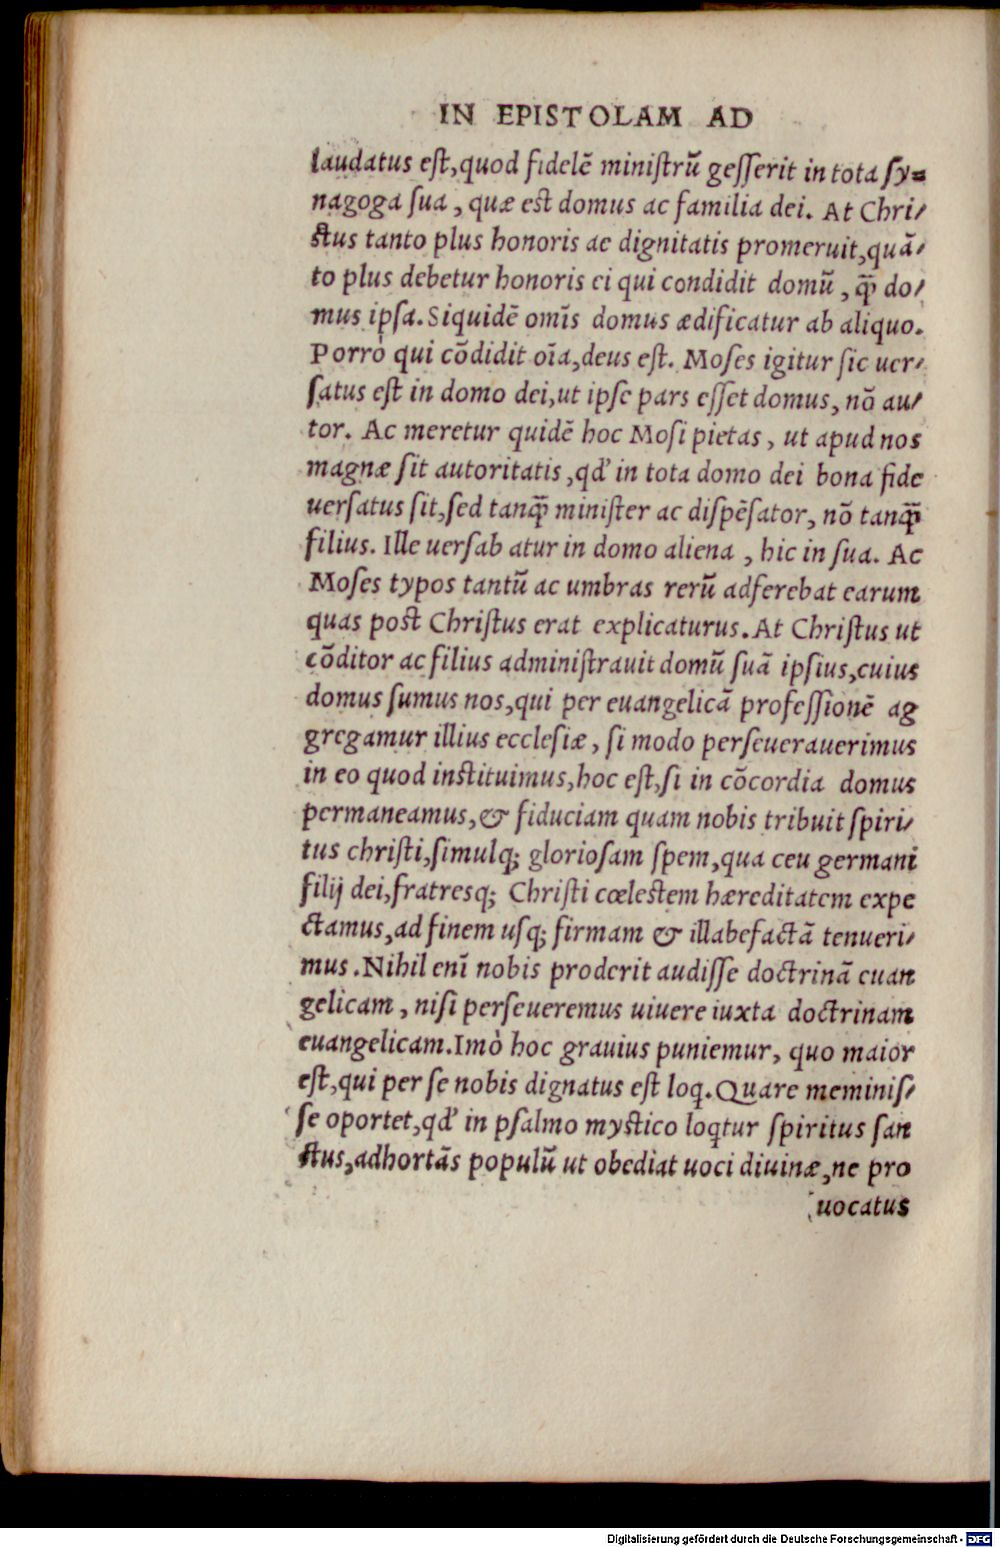 IN EPISTOLAM AD
laudatus eſt,quod fidelē miniſtrū geſſerit in tota ſy⸗
nagoga ſua, quæ est domus ac familia dei. At Chri/
ſtus tanto plus honoris ac dignitatis promeruit,quā/
to plus debetur honoris ei qui condidit domū, q̄ do/
mus ipſa. Siquidē omīs domus ædificatur ab aliquo.
Porrò qui cōdidit oīa,deus eſt. Moſes igitur ſic uer/
ſatus eſt in domo dei,ut ipſe pars eſſet domus, nō au/
tor. Ac meretur quidē hoc Moſi pietas, ut apud nos
magnæ ſit autoritatis,qd' in tota domo dei bona fide
uerſatus ſit,ſed tanq̄ miniſter ac diſpēſator, nō tanq̄
filius. Ille uerſab atur in domo aliena, hic in ſua. Ac
Moſes typos tantū ac umbras rerū adferebat earum
quas post Chriſtus erat explicaturus. At Chriſtus ut
cōditor ac filius adminiſtrauit domū ſuā ipſius,cuius
domus ſumus nos,qui per euangelicā profeſſionē ag
gregamur illius eccleſiæ, ſi modo perſeuerauerimus
in eo quod instituimus,hoc eſt,ſi in cōcordia domus
permaneamus,& fiduciam quam nobis tribuit ſpiri/
tus chriſti,ſimulq; glorioſam ſpem,qua ceu germani
filij dei,fratresq; Chriſti cœlestem hæreditatem expe
ctamus,ad finem uſq; firmam & illabefactā tenueri/
mus. Nihil enī nobis proderit audiſſe doctrinā euan
gelicam, niſi perſeueremus uiuere iuxta doctrinam
euangelicam. Imò hoc grauius puniemur, quo maior
eſt,qui per ſe nobis dignatus eſt loq. Quare meminiſ/
ſe oportet,qd' in pſalmo mystico loqtur ſpiritus ſan
ſtus,adhortās populū ut obediat uoci diuinæ,ne pro
uocatus
Digitalisierung gefördert durch die Deutsche Forschungsgemeinschaft - DFG